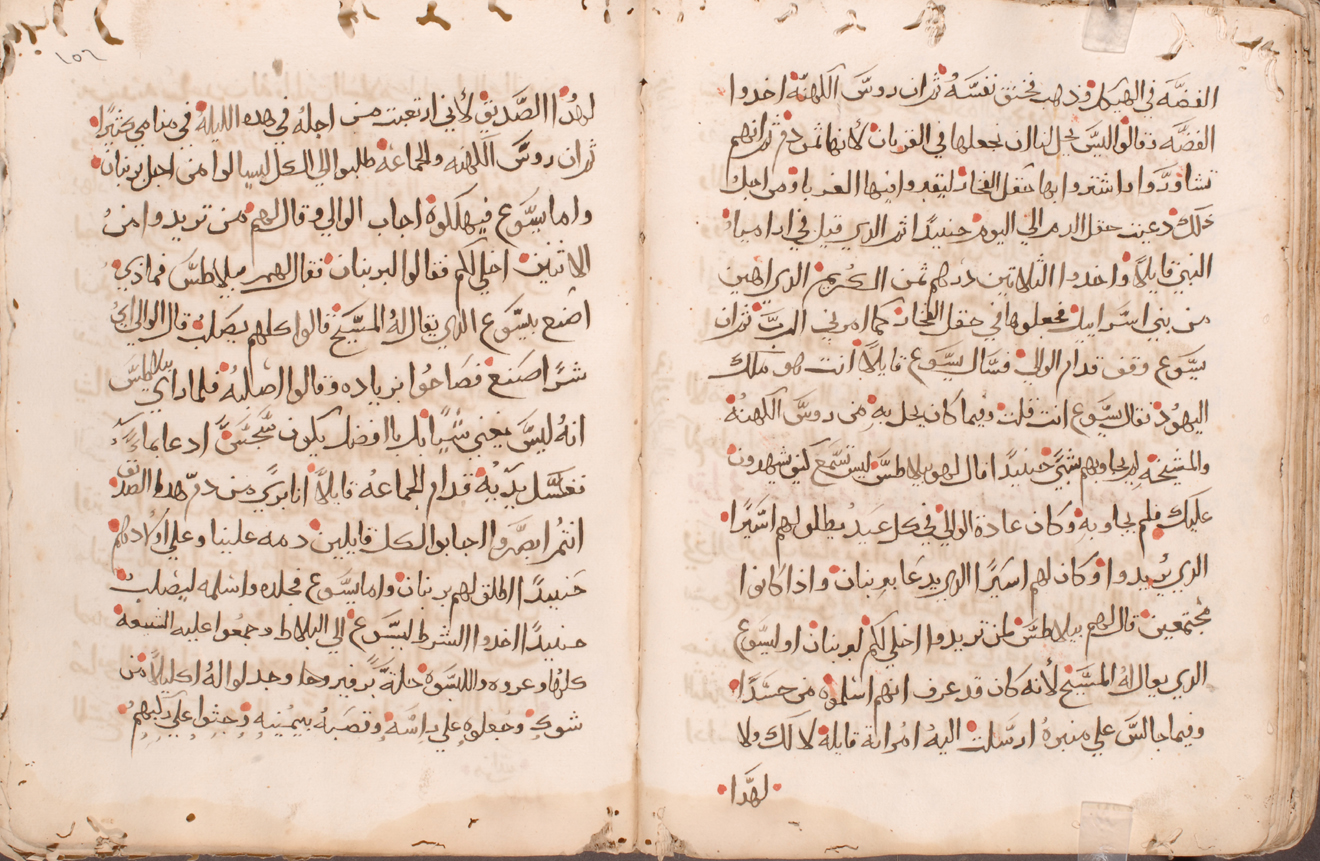 الفضّه في الهيكل وذهب فخنق نفسَهُ ثم ان روسَّ الكهنهّ اخدوا
الفضَّه وقالوا ليسَّ يحل لنا ان نجعلها في القربان لأنها ثمن دم ثم انهم
تشاوروّا واشتروا بها حقل الفخار ليقبروا فيها الغربا ومن اجل
ذلك دعيت حقل الدم الي اليوم حنيئدًا تم الدي قيل في ارمياء
النبي قايلاً واخدوا التلاتين درهم ثمن الكريم الدي
من بني اسَّراييل فجعلوها في حقل الفخار كما امرني الربّ ثم ان
يسَّوع وقف قدام الوالي فسَّال يسَّوع قايلاً انت هو ملك
اليهود فقال يسَّوع انت قلت وفيما كان به من روسَّ الكهنهُ
والمشيخه لم يجاوبهم بشيَّ حنيئدًا قال لهو بيلاطسَّ ليس تسَّمع كم يشهدون
عليك فلم يجاوبه وكان عادة الوالي في كل عيد يطلق لهم اسَّيرًا
الدي يريدوا وكان لهم اسَيرًا الدي يدعَا بربنان واذا كانوا
مجتمعين قال لهم بيلاطسَّ لمن تريدوا اخلي لكم لبربنان او ليسَّوع
الدي يقال لهُ المسَّيَح لأنه كان قد عرف انهم اسَّلموه من حسَّدًا
وفيما جالسَّ علي منبره ارسَّلت اليهُ امراته قايله لا لك ولا
لهدَّا
١٥٦
لهدُا الصَّديق لأني ارتعبت من اجلهُ في هده الليلهَ في منامي كثيرًا
ثم ان روسَّ الكهنه والجماعه طلبوا الي الكل ليسالوا من اجل بربنان
واما يسَّوع فيهلكوه اجاب الوالي وقال لهم من تريدوا من
الاتنين اخلي لكم فقالوا لبربنان فقال لهم بيلاطسَّ فمادي
اصنع بيسَّوع الدي يقال لهُ المسَّيَح قالوا كلهم يصَلب قال الوالي ايُ
شرًا صَنع فصَاحُوا بزياده وقالوا اصَلبهُ فلما راي بيلاطسَّ
انهُ ليسَّ يغني شيًا بل بالافضل يكون سَّجسَّ ادعا بماء
فغسَّل يديّهُ قدام الجماعهُ قايلاً انا بري من دم هدا الصَدّيق
انتُم ابصَروا اجابوا الكل قايلين دمه علينا وعلي اولادهم
حَنيئدًا اطلق لهم بربنان واما يسَّوع فجلده واسَلمه ليصَلب
حنيئدًا اخدوا الشرط ليسَّوع الي البلاط وجمعُوا عليه الشيعهُ
كلها وعروه والبسَّوه حلهّ برفير وجدلوا لهُ اكليلاً من
شوك وجعلوه علي راسَّه وقصَبه بيمُينيه وجثوا علي ركبهمُ